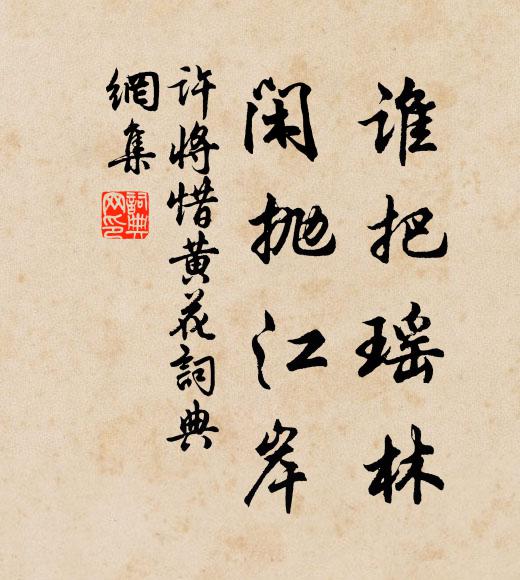 谁把瑶林
闲抛江岸
许将惜黄花詞典
網集
詞典
网印